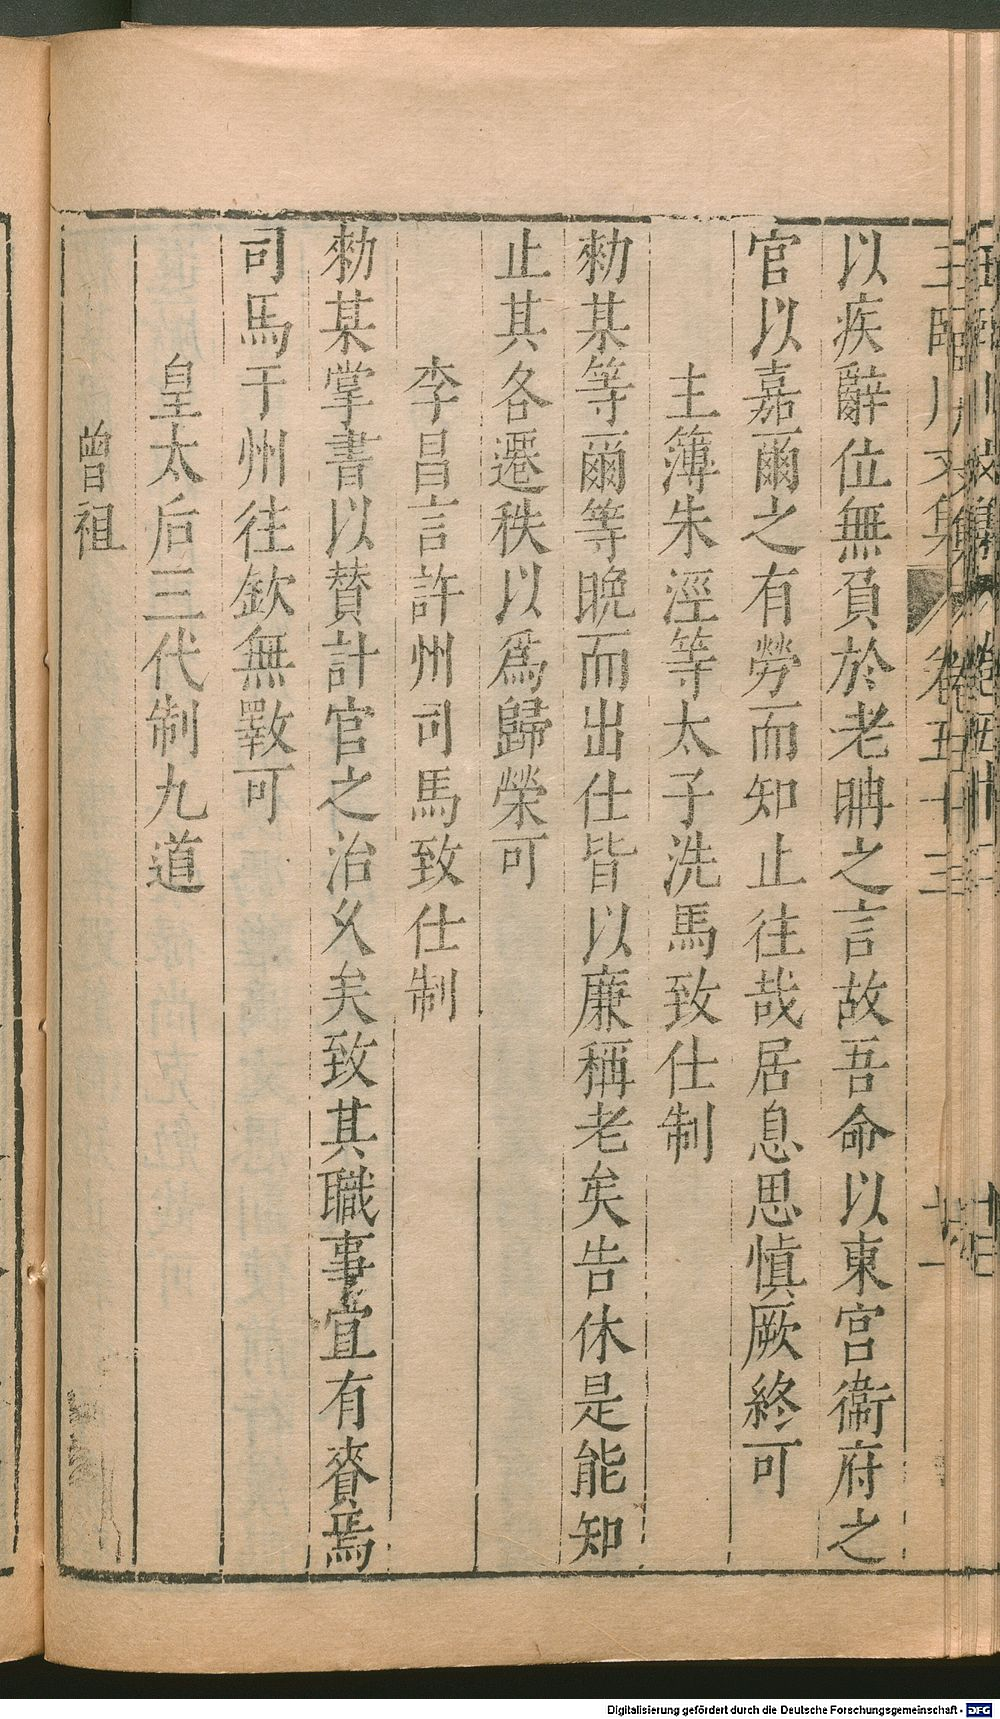 王臨川文集 卷五十三 十一
以疾辭位無負於老聃之言故吾命以東宮衞府之
官以嘉爾之有勞而知止往哉居息思愼厥終可
主簿朱涇等太子洗馬致仕制
勑某等爾等晚而出仕皆以廉稱老矣告休是能知
止其各遷秩以爲歸榮可
李昌言許州司馬致仕制
勑某掌書以賛計官之治久矣致其職事宜有賚焉
司馬于州往欽無斁可
皇太后三代制九道
曾祖
Digitalisierung gefördert durch die Deutsche Forschungsgemeinschaft - DFG